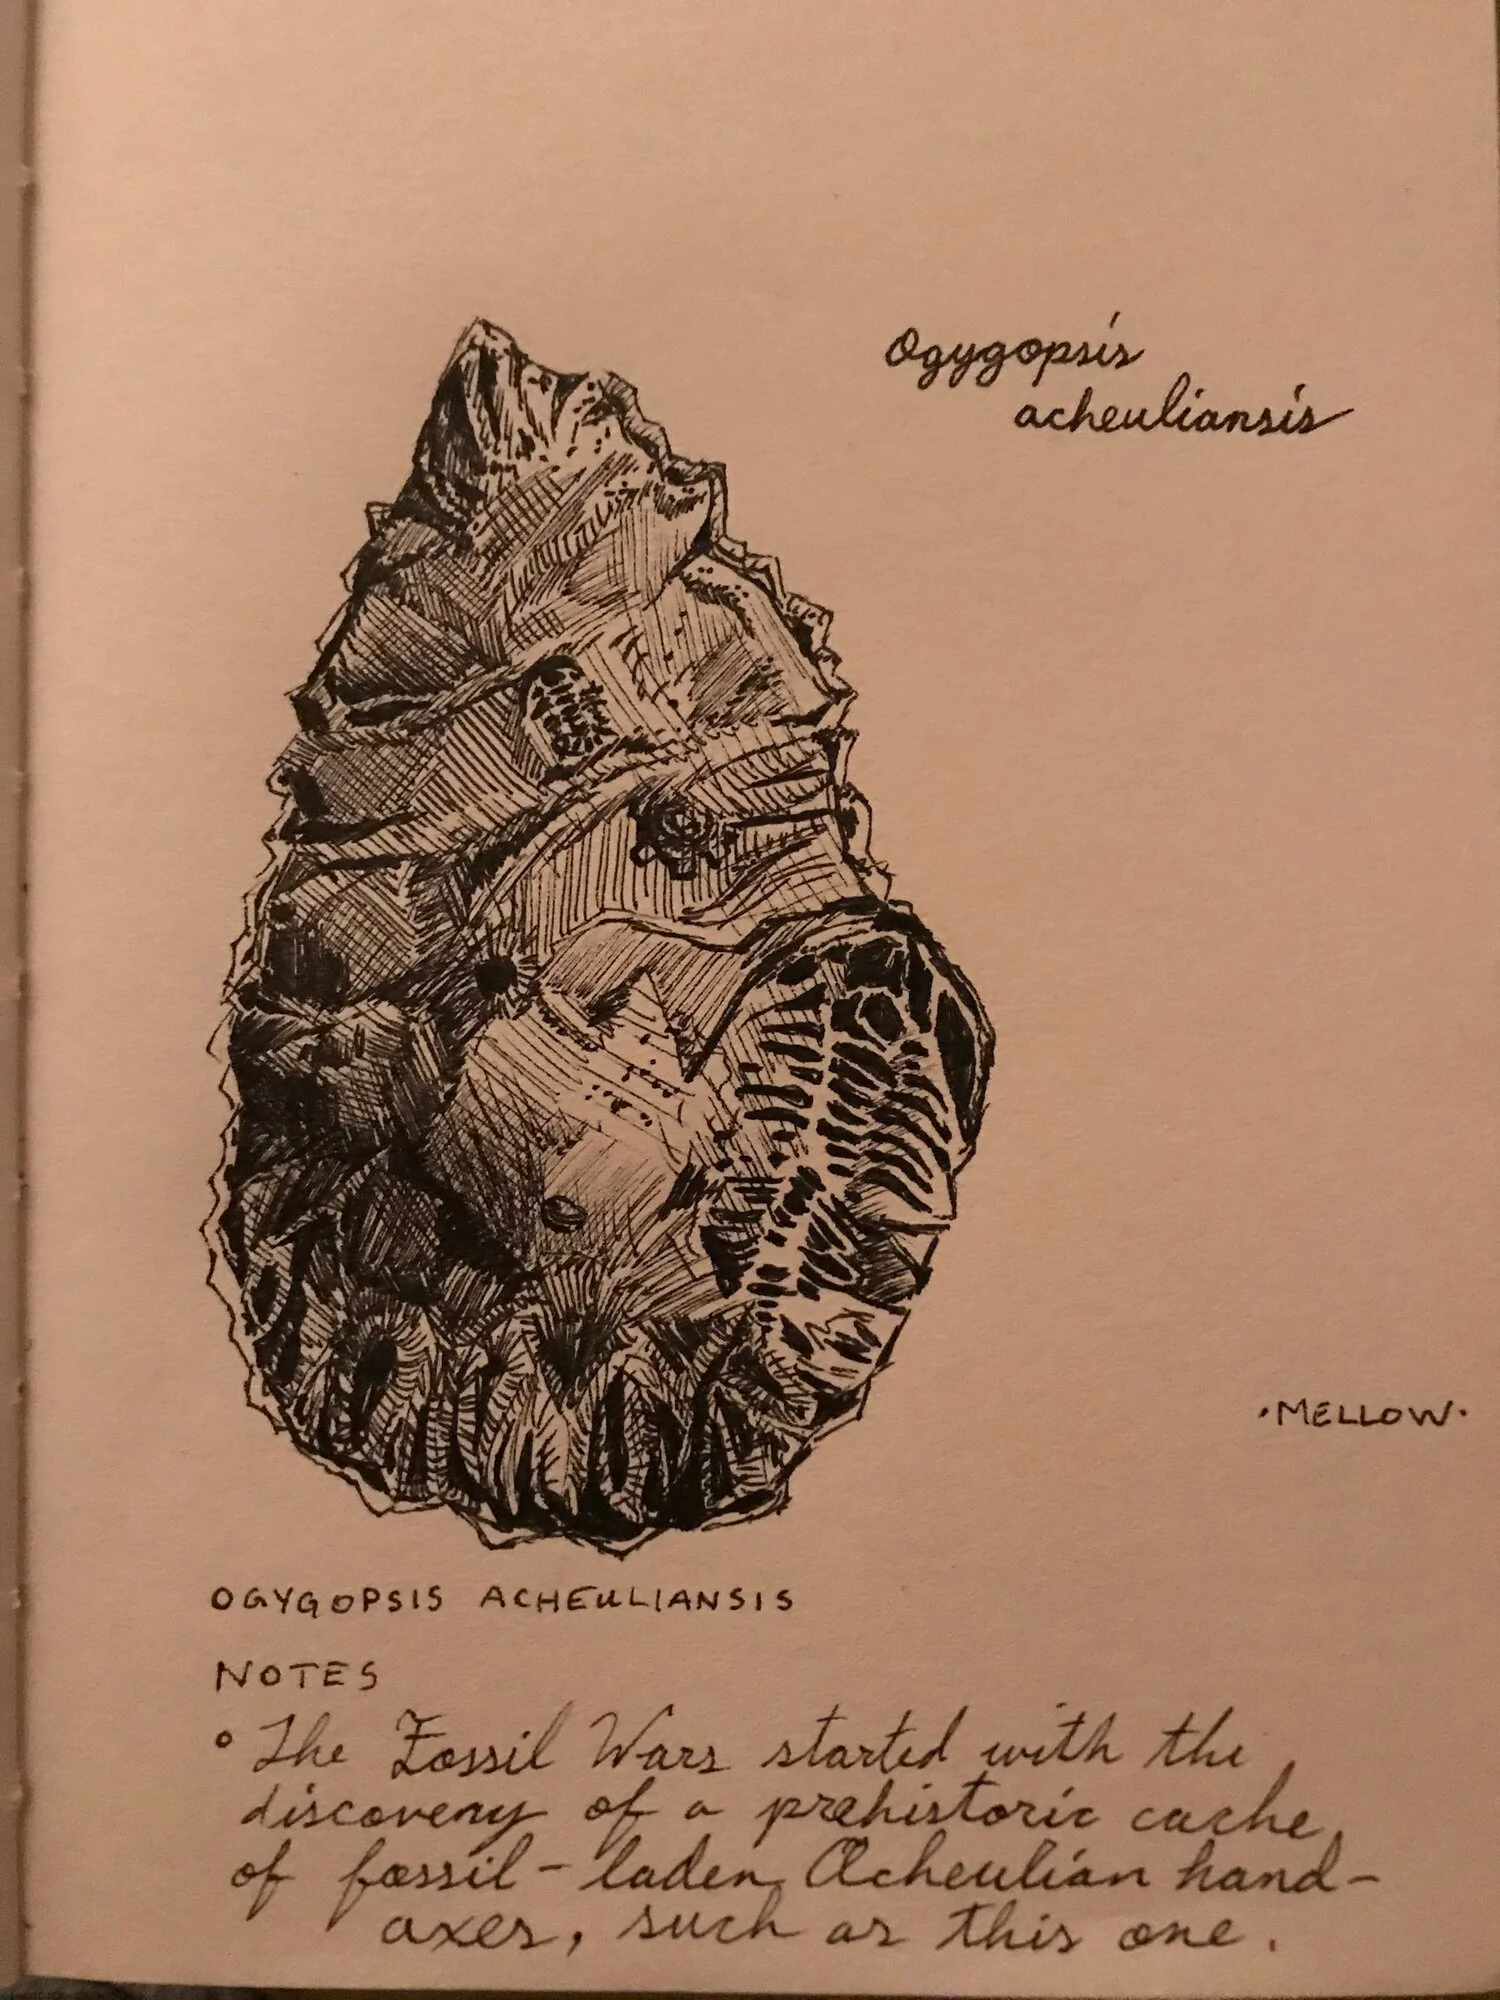 Ogygopsis
acheuliansis
·MELLOW·
OGYGOPSIS ACHEULIANSIS
NOTES
° The Fossil Wars started with the
discovery of a prehistoric cache
of fossil-laden Acheulian hand-
axes, such as this one.